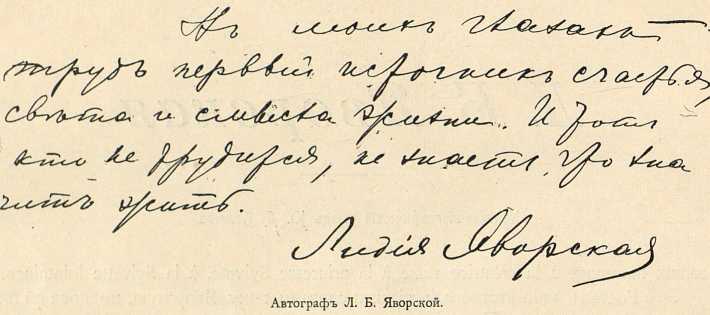 Въ моихъ глазахъ
трудъ первый источникъ счастья,
свѣта и смысла жизни. И тотъ
кто не трудится, не знаетъ, что зна
читъ жить.
Лидія Яворская
Автографъ Л. Б. Яворской.